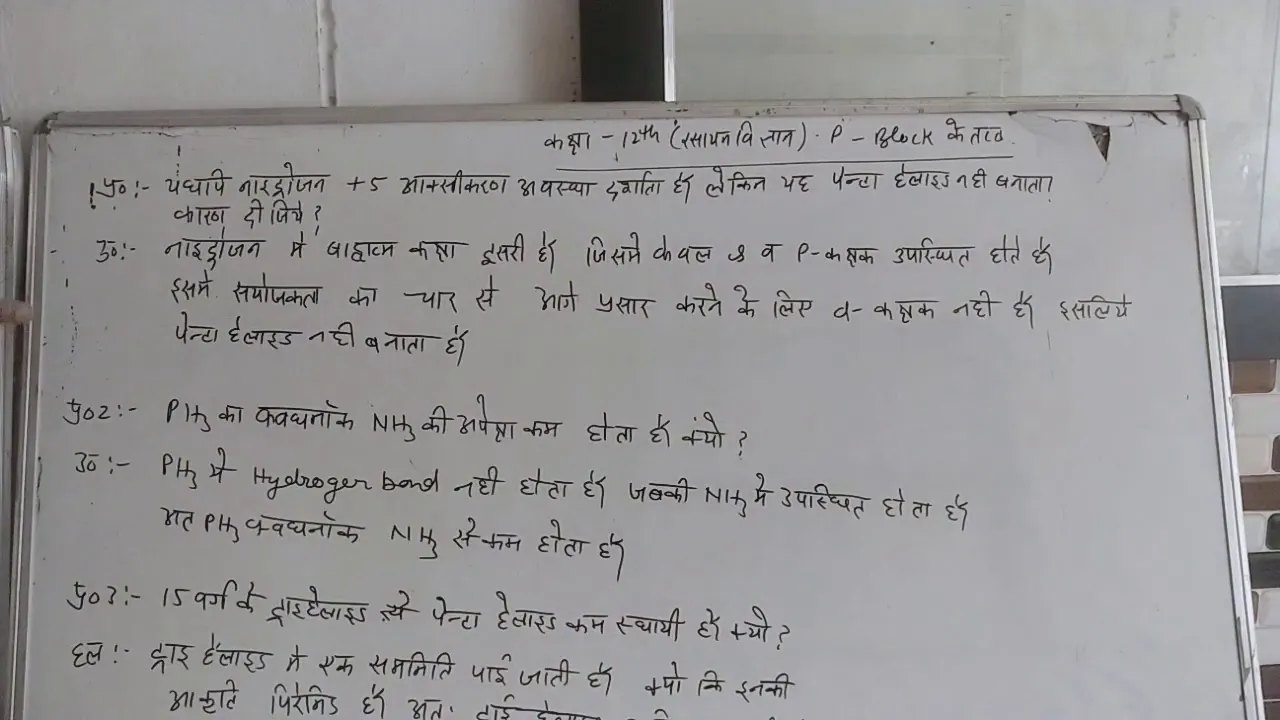 कक्षा - 12th (रसायन विज्ञान). P - Block के तत्व
प्र०:- यद्यपि नाइट्रोजन +5 आक्सीकरण अवस्था दर्शाता है लेकिन यह पेन्टा हैलाइड नही बनाता।
कारण दीजिये?
उ०:- नाइट्रोजन मे बाह्यतम कक्षा दूसरी है जिसमे केवल s व P-कक्षक उपस्थित होते है
इसमे सयोजकता का चार से आगे प्रसार करने के लिए d- कक्षक नही है इसलिये
पेन्टा हैलाइड नही बनाता है
प्र०2:- PH3 का क्वथनाँक NH3 की अपेक्षा कम होता है क्यो?
उ०:- PH3 मे Hydroger bond नही होता है जबकी NH3 मे उपस्थित होता है
अत PH3 क्वथनाँक NH3 से कम होता है
प्र०3:- 15 वर्ग के ट्राइहैलाइड से पेन्टा हैलाइड कम स्थायी है क्यो?
हल:- ट्राइ हैलाइड मे एक सममिति पाई जाती है क्यो कि इनकी
आकृति पिरेमिड है अत: